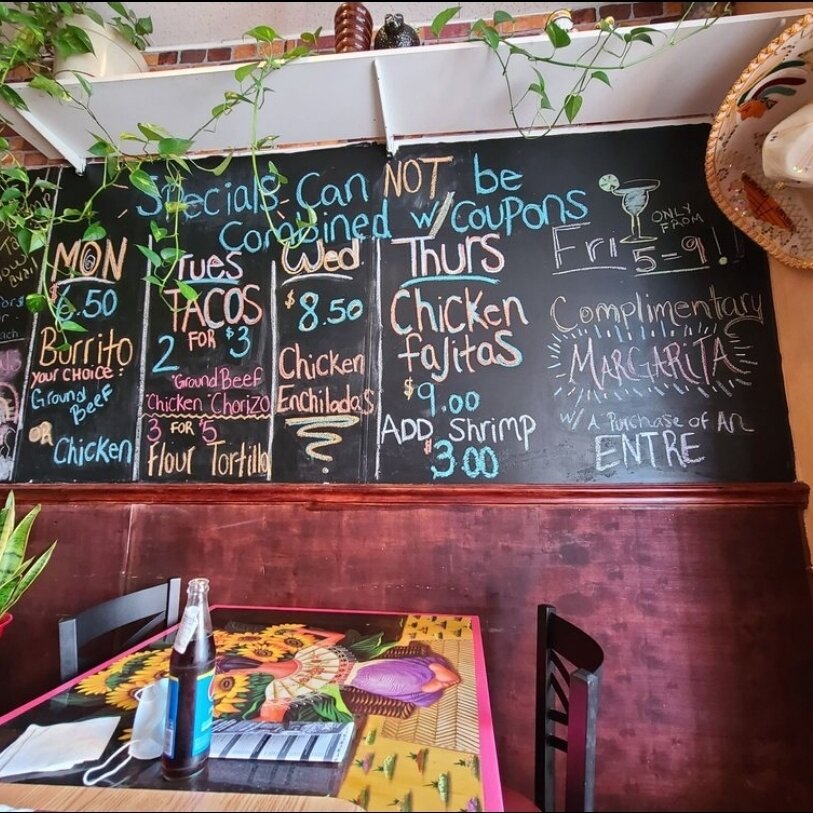 Specials Can NOT be
Combined w/ Coupons
MON
$6.50
Burrito
YOUR CHOICE:
Ground
Beef
OR
Chicken
Tues
TACOS
2 FOR $3
Ground Beef
Chicken Chorizo
3 FOR $5
Flour Tortilla
Wed
$8.50
Chicken
Enchiladas
Thurs
Chicken
fajitas
$9.00
ADD Shrimp
$3.00
Fri
ONLY
FROM
5-9!!
Complimentary
MARGARITA
w/ A Purchase OF AN
ENTRE